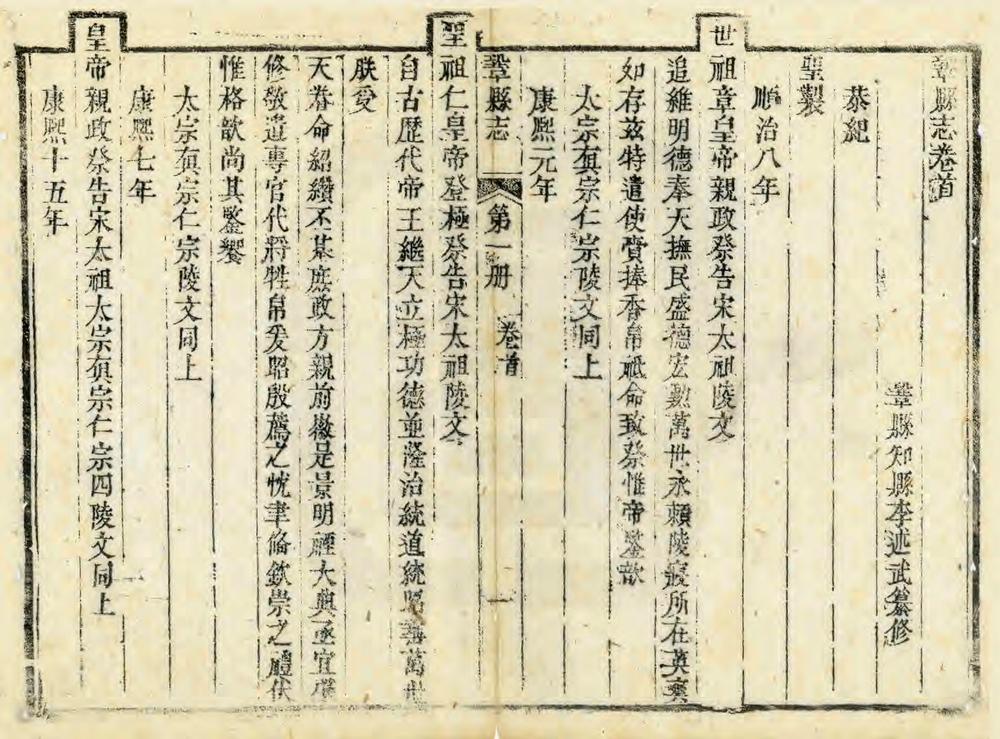 鞏縣志卷首
鞏縣知縣李述武纂修
恭紀
聖製
順治八年
世祖章皇帝親政祭告宋太祖陵文
追維明德奉天撫民盛德宏勳萬世永賴陵寢所在英爽
如存茲特遣使賫捧香帛祗命致祭惟帝鑒歆
太宗真宗仁宗陵文同上
康熙元年
鞏縣志 第一册 卷首 一
聖祖仁皇帝登極祭告宋太祖陵文
自古歷代帝王繼天立極功德並隆治統道統昭垂萬世
朕受
天眷命紹纘丕基庶政方親前徽是景明禋大典亟宜肇
修敬遣專官代將牲帛爰昭殷薦之忱聿備欽崇之禮伏
惟格歆尚其鑒饗
太宗真宗仁宗陵文同上
康熙七年
皇帝親政祭告宋太祖太宗真宗仁宗四陵文同上
康熙十五年